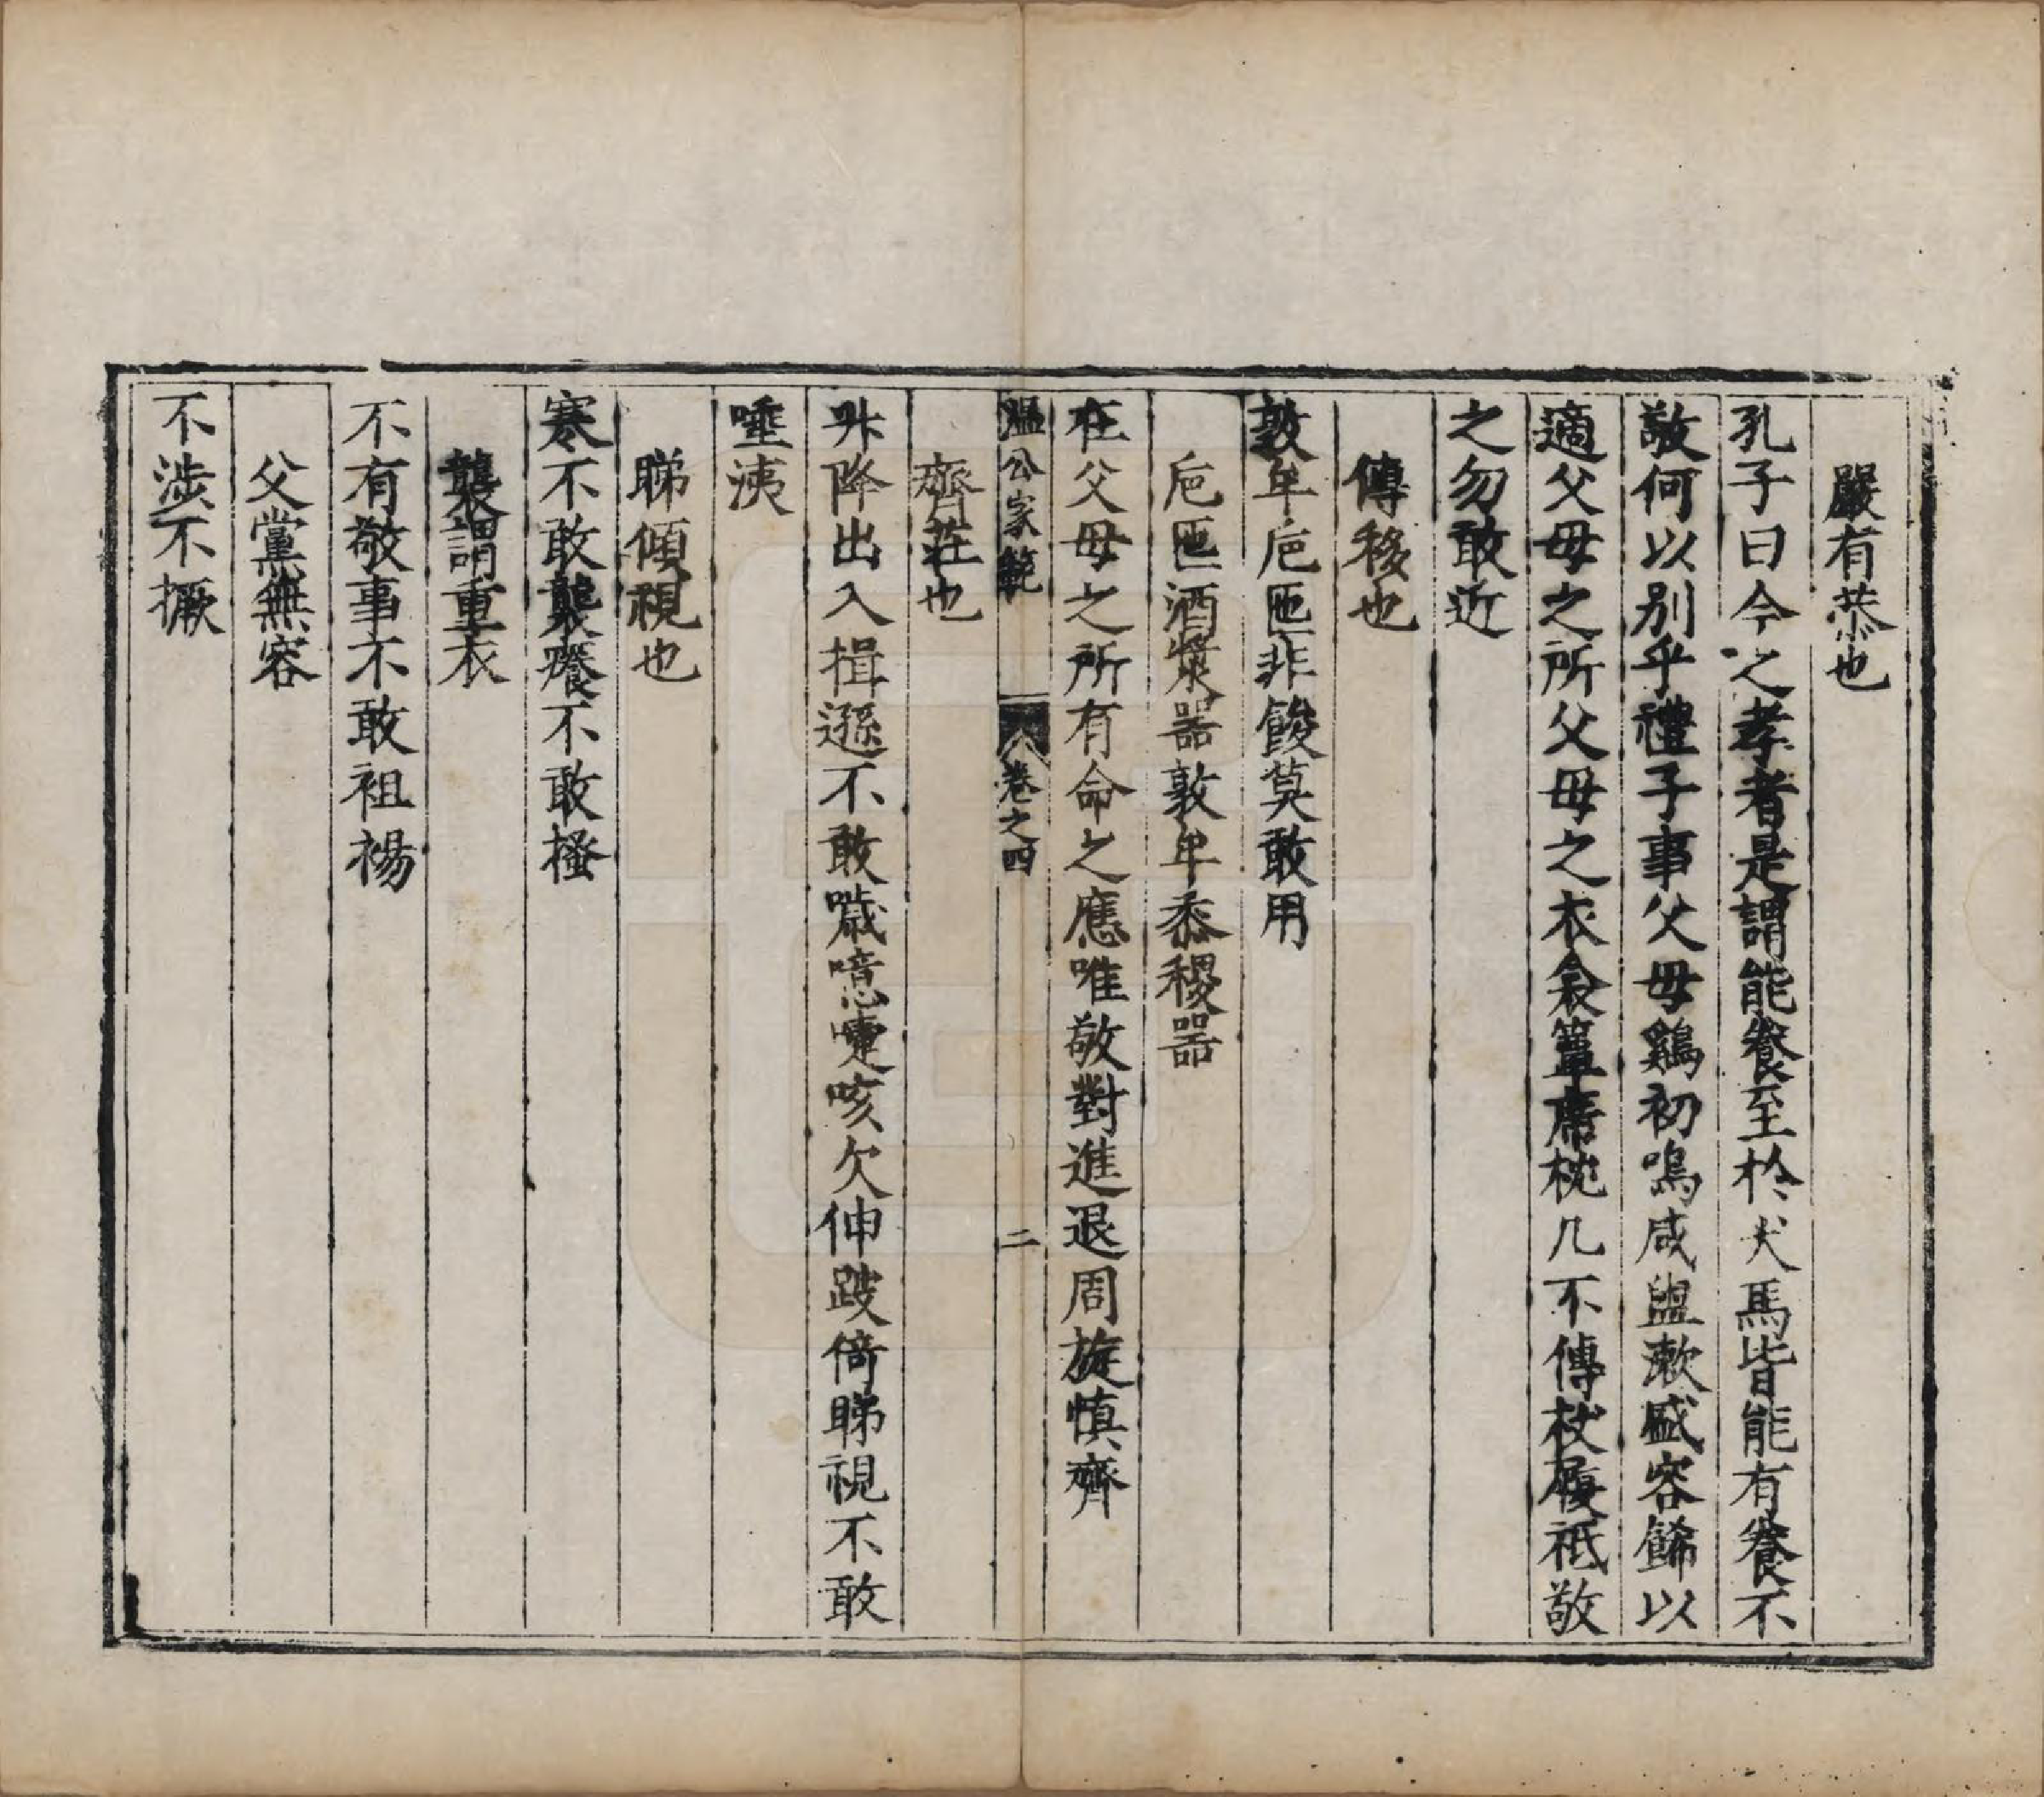 嚴有恭也
孔子曰今之孝者是謂能養至於犬馬皆能有養不
敬何以别乎禮子事父母鷄初鳴咸盥漱盛容餙以
適父母之所父母之衣衾簟席枕几不傳杖履祗敬
之勿敢近
傳移也
敦牟巵匜非餕莫敢用
巵匜酒漿器敦牟黍稷器
在父母之所有命之應唯敬對進退周旋慎齊
溫公家範 卷之四 二
齊莊也
升降出入揖遜不敢噦噫嚏咳欠伸跛倚睇視不敢
唾洟
睇傾視也
寒不敢襲癢不敢搔
襲謂重衣
不有敬事不敢袒裼
父黨無容
不涉不撅